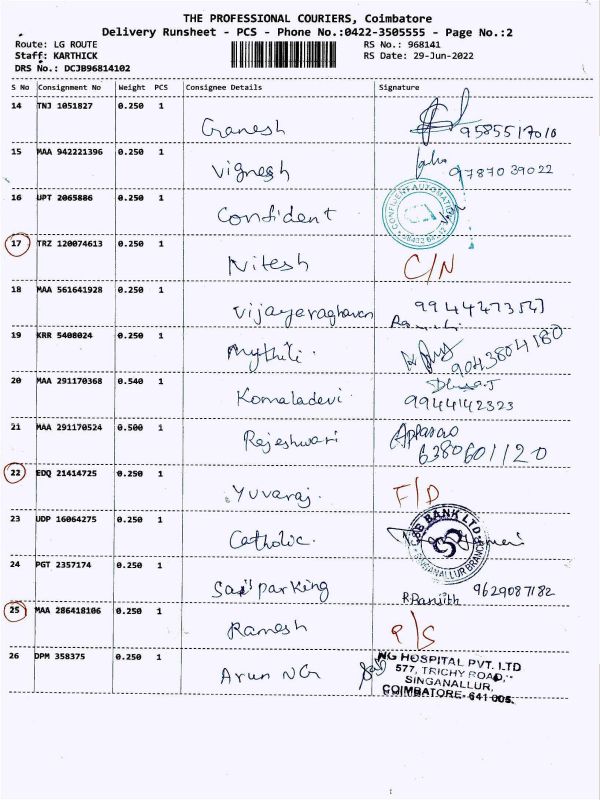 THE PROFESSIONAL COURIERS, Coimbatore
Delivery Runsheet - PCS - Phone No.:0422-3505555 - Page No.:2
Route: LG ROUTE RS No.: 968141
Staff: KARTHICK RS Date: 29-Jun-2022
DRS No.: DCJB96814102
S No Consignment No Weight PCS Consignee Details Signature
14 TNJ 1051827 0.250 1 Ganesh 9585517010
15 MAA 942221396 0.250 1 Vignesh 9787039022
16 UPT 2065886 0.250 1 Confident CONFIDENT AUTOMATION
17 TRZ 120074613 0.250 1 Nitesh C/N
18 MAA 561641928 0.250 1 Vijayeraghaven
19 KRR 5408024 0.250 1 Mythili. 9043804180
20 MAA 291170368 0.540 1 Komaladevi 9944142323
21 MAA 291170524 0.500 1 Rejeshwari Apparao 6380601120
22 EDQ 21414725 0.250 1 Yuvaraj. F/D
23 UDP 16064275 0.250 1 Catholic. BANK LTD SINGANALLUR BRANCH
24 PGT 2357174 0.250 1 Sai parking R Ranjith 9629087182
25 MAA 286418106 0.250 1 Ramesh P/S
26 DPM 358375 0.250 1 Arun NG NG HOSPITAL PVT. LTD
577, TRICHY ROAD,
SINGANALLUR,
COIMBATORE- 641 005.